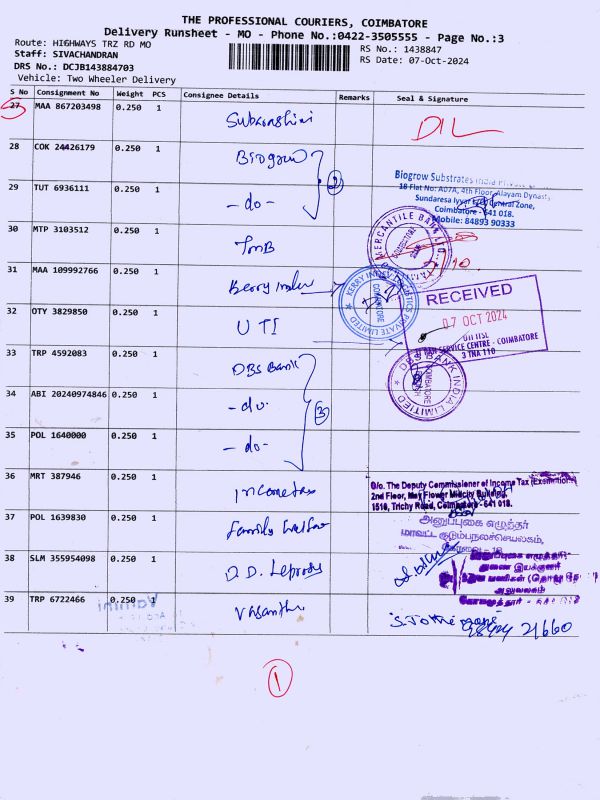 THE PROFESSIONAL COURIERS, COIMBATORE
Delivery Runsheet - MO - Phone No.:0422-3505555 - Page No.:3
Route: HIGHWAYS TRZ RD MO
RS No.: 1438847
Staff: SIVACHANDRAN
RS Date: 07-Oct-2024
DRS No.: DCJB143884703
Vehicle: Two Wheeler Delivery
S No Consignment No Weight PCS Consignee Details Remarks Seal & Signature
27 MAA 867203498 0.250 1
28 COK 24426179 0.250 1 Biogrow
2
Biogrow Substrates India Private
18 Flat No: A07A, 4th Floor, Alayam Dynasty
Sundaresa Iyyer Central Zone,
Coimbatore - 641 018.
Mobile: 84893 90333
29 TUT 6936111 0.250 1 -do-
30 MTP 3103512 0.250 1 TMB
MERCANTILE BANK LTD.
COIMBATORE
31 MAA 109992766 0.250 1
KERRY INDEV LOGISTICS PRIVATE LIMITED
COIMBATORE
32 OTY 3829850 0.250 1 UTI
RECEIVED
07 OCT 2024
UTIITSL
PAN SERVICE CENTRE - COIMBATORE
3 TNA 110
33 TRP 4592083 0.250 1 DBS Bank
3
DBS BANK INDIA LIMITED
COIMBATORE
34 ABI 20240974846 0.250 1 -do-
35 POL 1640000 0.250 1 -do-
36 MRT 387946 0.250 1 Incometax
O/o. The Deputy Commissioner of Income Tax (Exemption)
2nd Floor, May Flower Midcity Building,
1510, Trichy Road, Coimbatore - 641 018.
37 POL 1639830 0.250 1 family welfare
அனுப்புகை எழுத்தர்
மாவட்ட குடும்பநலச்செயலகம்,
38 SLM 355954098 0.250 1 D.D. Leprosy
அனுப்புகை எழுத்தர்
துணை இயக்குனர்
அலுவலகம்
39 TRP 6722466 0.250 1 Vasantha
1